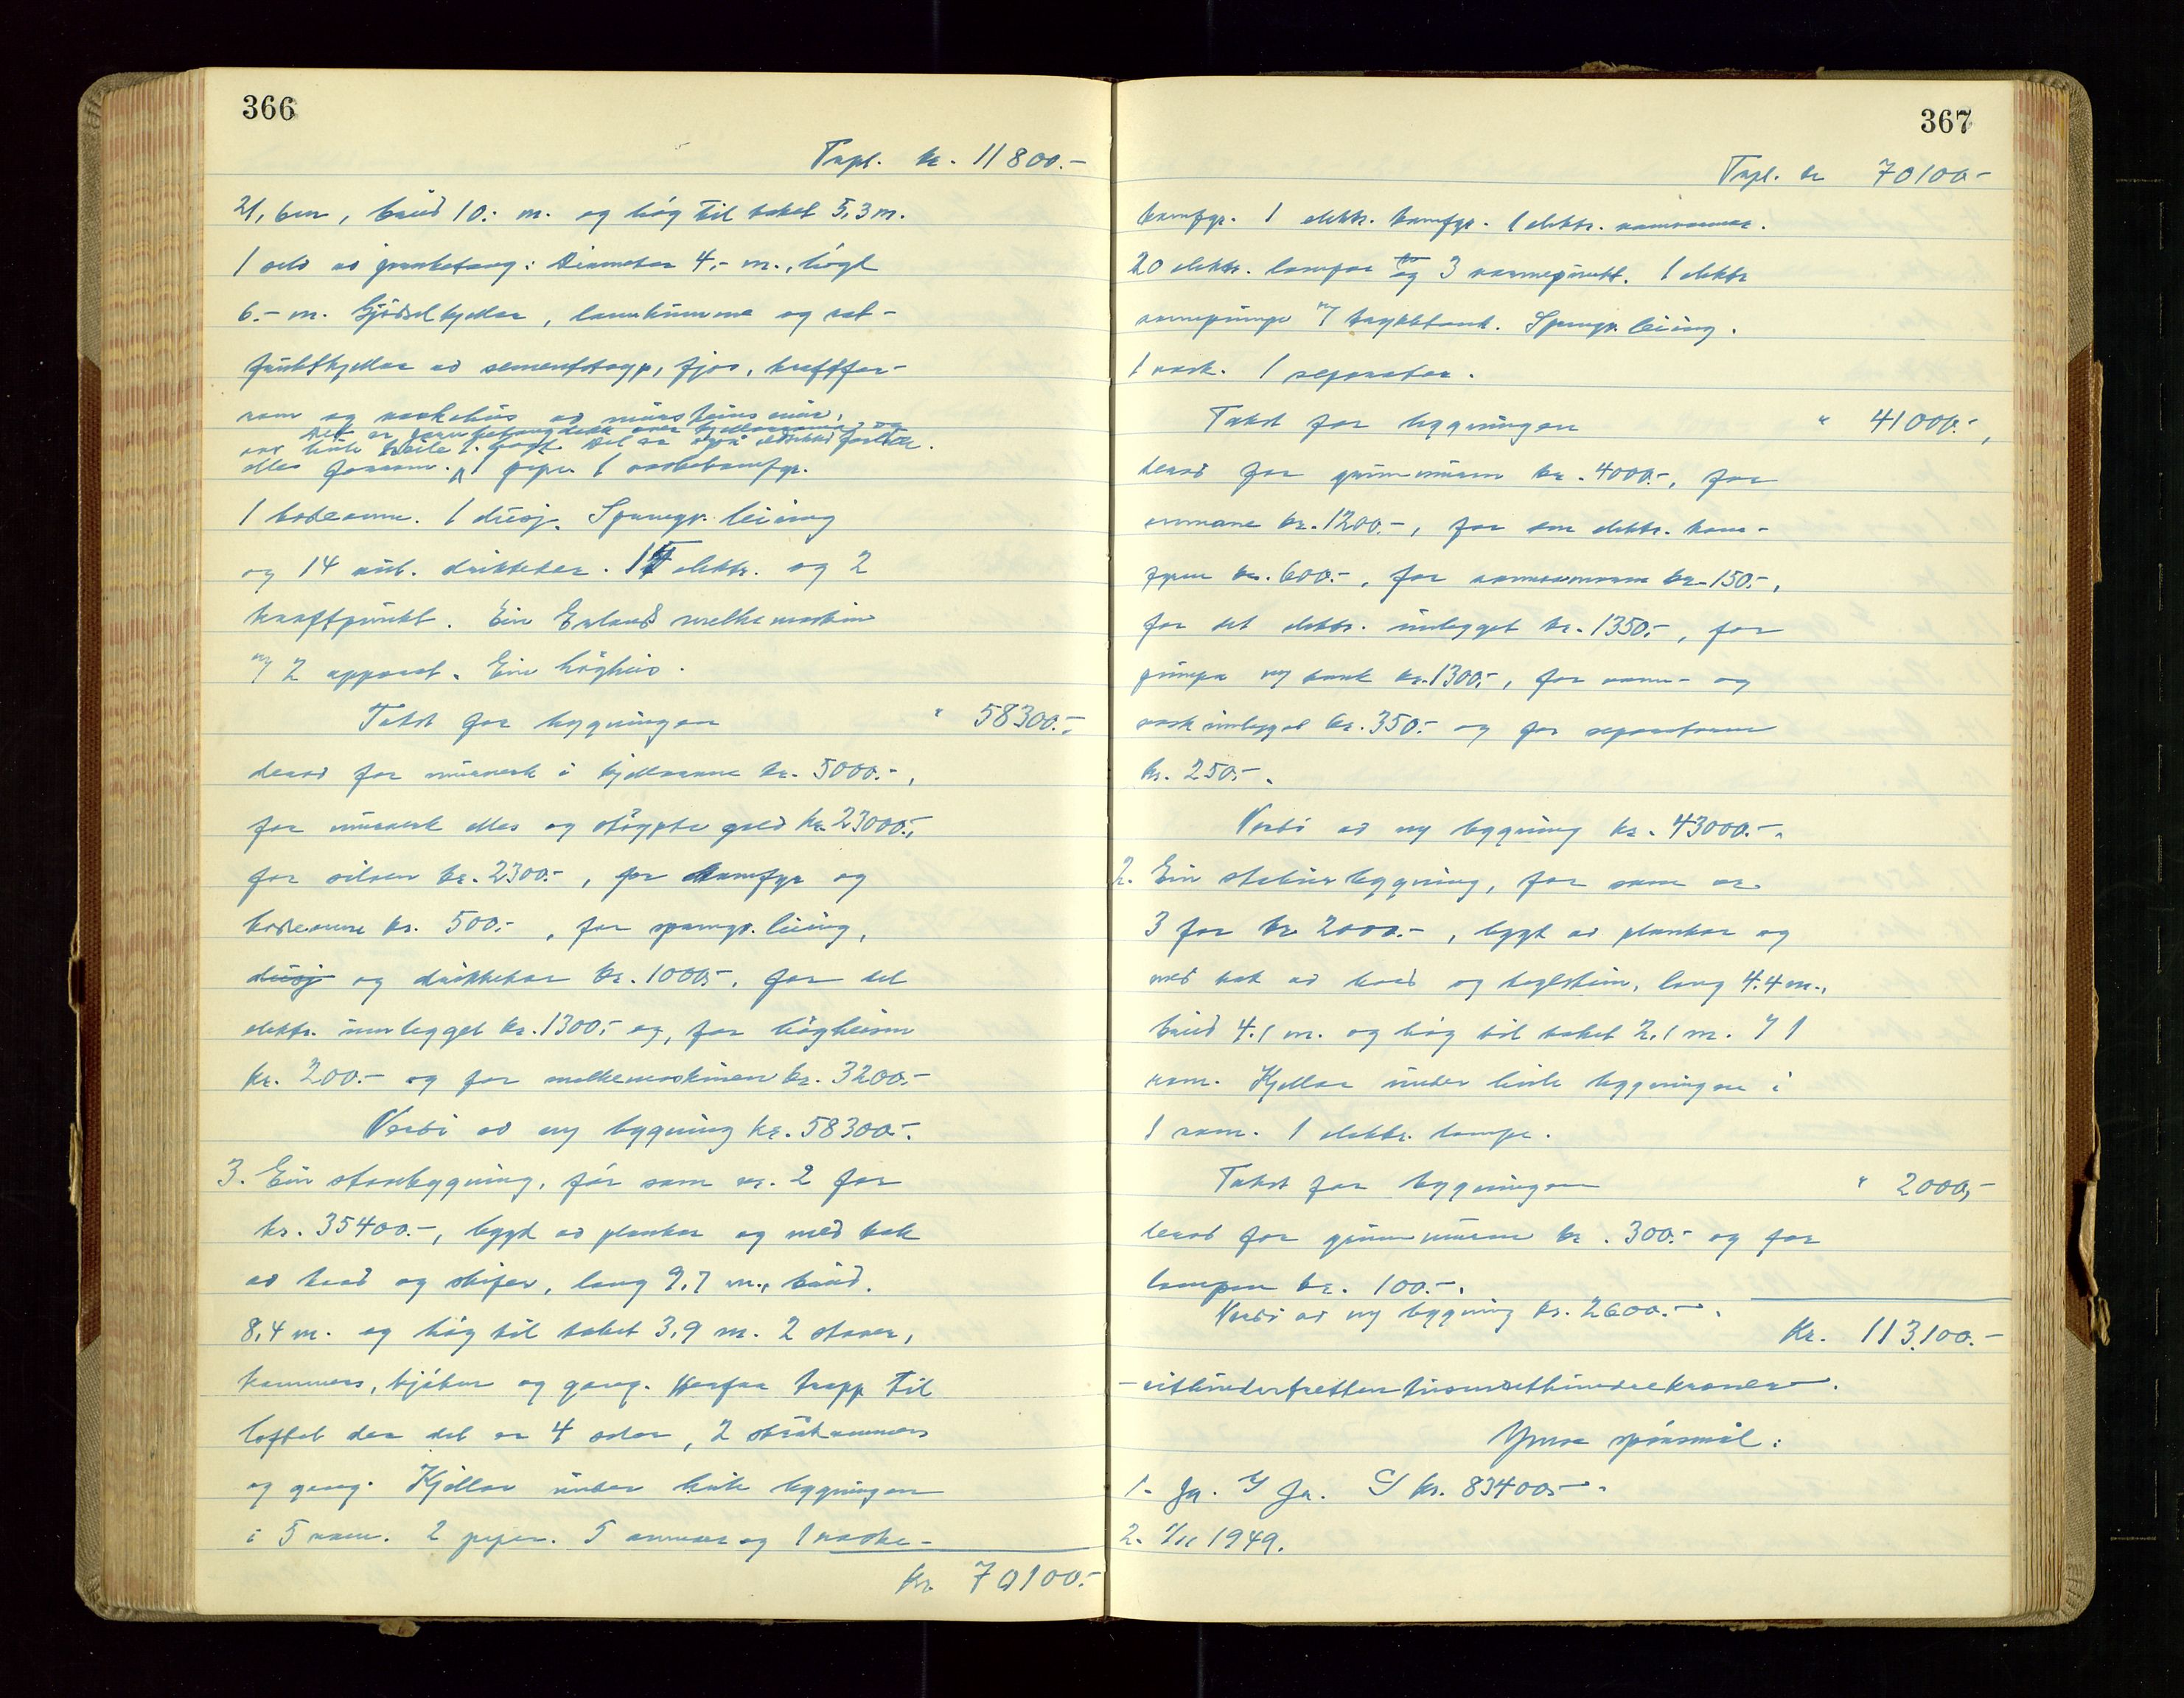 366
Trpl. kr. 11800.-
21,6m, breid 10.- m. og høg til taket 5,3 m.
1 silo av jernbetong: Diameter 4,- m., høgd
6.- m. Gjødselkjellar, landkumme og rot-
fruktkjellar av sementstøyp, fjos, kraftfor-
rom og vaskehus av mursteinsmur,
Det er jernbetongdekk over kjellarane og
elles 1 pipe. 1 vaskekomfyr.
1 badeomn. 1 dusj. Springv. leiing
og 14 aut. drikkekar. 15 elektr. og 2
kraftpunkt. Ein Enland melkemaskin
m/ 2 apparat. Ein høyheis.
Takst for bygningen " 58300.-
derav for murverk i kjellarane kr. 5000.-,
for murverk elles og støypte golv kr. 23000.-,
for siloen kr. 2300.-, for komfyr og
badeomn kr. 500.-, for springv. leiing,
dusj og drikkekar kr. 1000,-, for det
elektr. innlegget kr. 1300,- og, for høyheisen
kr. 200.- og for melkemaskinen kr. 3200.-
Verdi av ny bygning kr. 58300.-.
3. Ein stovebygning, før som nr. 2 for
kr. 35400.-, bygd av plankar og med tak
av bord og skifer, lang 9,7 m., breid.
8,4 m. og høg til taket 3,9 m. 2 stover,
kammers, kjøken og gang. Herfra trapp til
loftet der det er 4 sover, 2 kammers
og gang. Kjellar under heile bygningen
i 5 rom. 2 piper. 5 omnar og 1 vaske-
kr. 70100.-
367
Trpl. kr 70100.-
komfyr. 1 elektr. komfyr. 1 elektr. varmeomn.
20 elektr. lampor og 3 varmepunkt. 1 elektr
vannpumpe m/ trykktank. Springv. leiing.
1 vask. 1 separator.
Takst for bygningen " 41000.-,
derav for grunnmuren kr. 4000.-, for
omnane kr. 1200.-, for den elektr. kom-
fyren kr. 600.-, for varmeomnen kr. 150.-,
for det elektr. innlegget kr. 1350,-, for
pumpa m/ tank kr. 1300,-, for vann- og
vaskinnlegget kr. 350.- og for separatoren
kr. 250,-.
Verdi av ny bygning kr. 43000.-.
2. Ein stabursbygning, før som nr.
3 for kr 2000.-, bygd av plankar og
med tak av bord og teglstein, lang 4.4 m.,
breid 4.1 m. og høg til taket 2,1 m. 1
rom. Kjellar under heile bygningen i
1 rom. 1 elektr. lampe.
Takst for bygningen " 2000,-
derav for grunnmuren kr. 300.- og for
lampen kr. 100.-.
Verdi av ny bygning kr. 2600.-.
Kr. 113.100.-
- eithundretrettentusenetthundrekroner -.
Ymse spørsmål:
1. Ja. Ja. kr. 83400,-.
2. 1949.